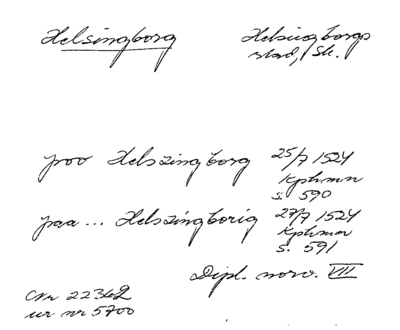 Helsingborg Helsingborgs
stad, Sk.
poo Helszingborg 25/7 1524
Kphmn
s. 590
paa ... Helszingborig 27/7 1524
Kphmn
s. 591
Dipl. norv. VII
Cnr 22362
ur nr 5700